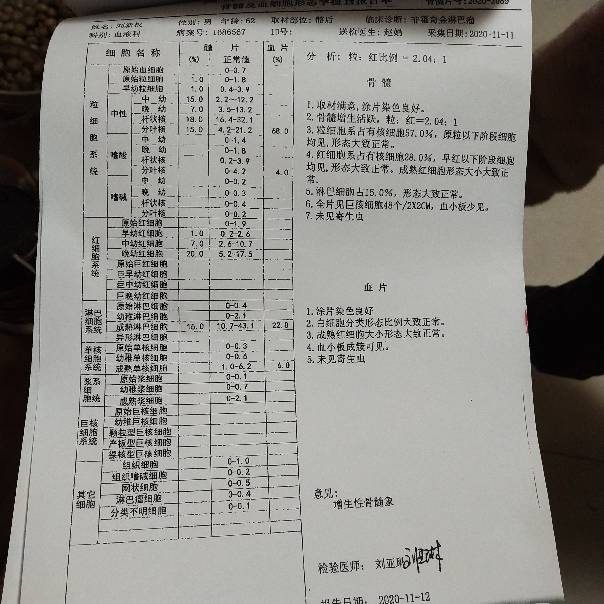 性别: 男 年龄: 62 取材部位: 髂后 临床诊断: 非霍奇金淋巴瘤
科别: 血液科 病案号: 1686567 ID号: 送检医生: 赵娟 采集日期: 2020-11-11
细胞名称 髓片 血片
(%) 正常值 (%)
粒细胞系统
原始血细胞 0-0.7
原始粒细胞 1.0 0-1.8
早幼粒细胞 1.0 0.4-3.9
中性 中幼 15.0 2.2-12.2
晚幼 7.0 3.5-13.2
杆状核 18.0 16.4-32.1
分叶核 15.0 4.2-21.2 68.0
嗜酸 中幼 0-1.4
晚幼 0-1.8
杆状核 0.2-3.9
分叶核 0-4.2 4.0
嗜碱 中幼 0-0.2
晚幼 0-0.3
杆状核 0-0.4
分叶核 0-0.2
红细胞系统
原始红细胞 0-1.9
早幼红细胞 1.0 0.2-2.6
中幼红细胞 7.0 2.6-10.7
晚幼红细胞 20.0 5.2-17.5
原始巨红细胞
巨早幼红细胞
巨中幼红细胞
巨晚幼红细胞
淋巴细胞系统
原始淋巴细胞 0-0.4
幼稚淋巴细胞 0-2.1
成熟淋巴细胞 15.0 10.7-43.1 22.0
异形淋巴细胞
单核细胞系统
原始单核细胞 0-0.3
幼稚单核细胞 0-0.6
成熟单核细胞 1.0-6.2 6.0
浆系细胞统
原始浆细胞 0-0.1
幼稚浆细胞 0-0.7
成熟浆细胞 0-2.1
巨核细胞系统
原始巨核细胞
幼稚巨核细胞
颗粒型巨核细胞
产板型巨核细胞
裸核型巨核细胞
其它细胞
组织细胞 0-1.0
组织嗜碱细胞 0-0.2
网状细胞 0-0.5
淋巴瘤细胞 0-0.4
分类不明细胞 0-0.1
分析: 粒: 红比例 = 2.04: 1
骨髓
1. 取材满意, 涂片染色良好。
2. 骨髓增生活跃, 粒: 红=2.04: 1
3. 粒细胞系占有核细胞57.0%, 原粒以下阶段细胞
均见, 形态大致正常。
4. 红细胞系占有核细胞28.0%, 早红以下阶段细胞
均见, 形态大致正常。成熟红细胞形态大小大致正
常。
5. 淋巴细胞占15.0%, 形态大致正常。
6. 全片见巨核细胞48个/2X2CM, 血小板少见。
7. 未见寄生虫
血片
1. 涂片染色良好
2. 白细胞分类形态比例大致正常。
3. 成熟红细胞大小形态大致正常。
4. 血小板成簇可见。
5. 未见寄生虫
意见:
增生性骨髓象
检验医师: 刘亚琳
报告日期: 2020-11-12